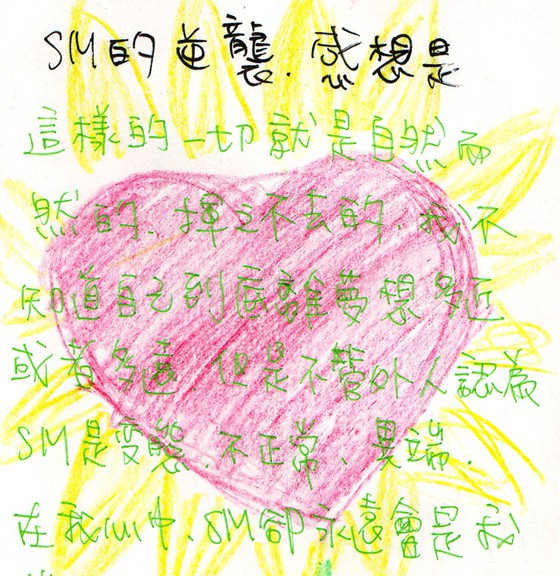 SM的逆襲.感想是
這樣的一切就是自然而
然的、揮之不去的、我不
知道自己到底離夢想多近
或者多遠 但是不管外人認為
SM是變態、不正常、異端.
在我心中、SM卻永遠會是我